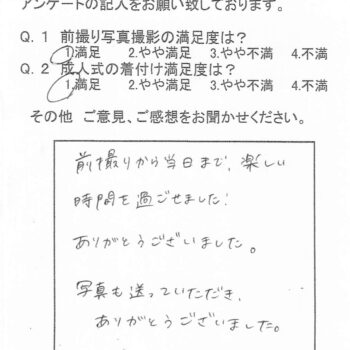 アンケートの記入をお願い致しております。
Q.1 前撮り写真撮影の満足度は？
1.満足 2.やや満足 3.やや不満 4.不満
Q.2 成人式の着付け満足度は？
1.満足 2.やや満足 3.やや不満 4.不満
その他 ご意見、ご感想をお聞かせください。
前撮りから当日まで、楽しい
時間を過ごせました！
ありがとうございました。
写真も送っていただき、
ありがとうございました。